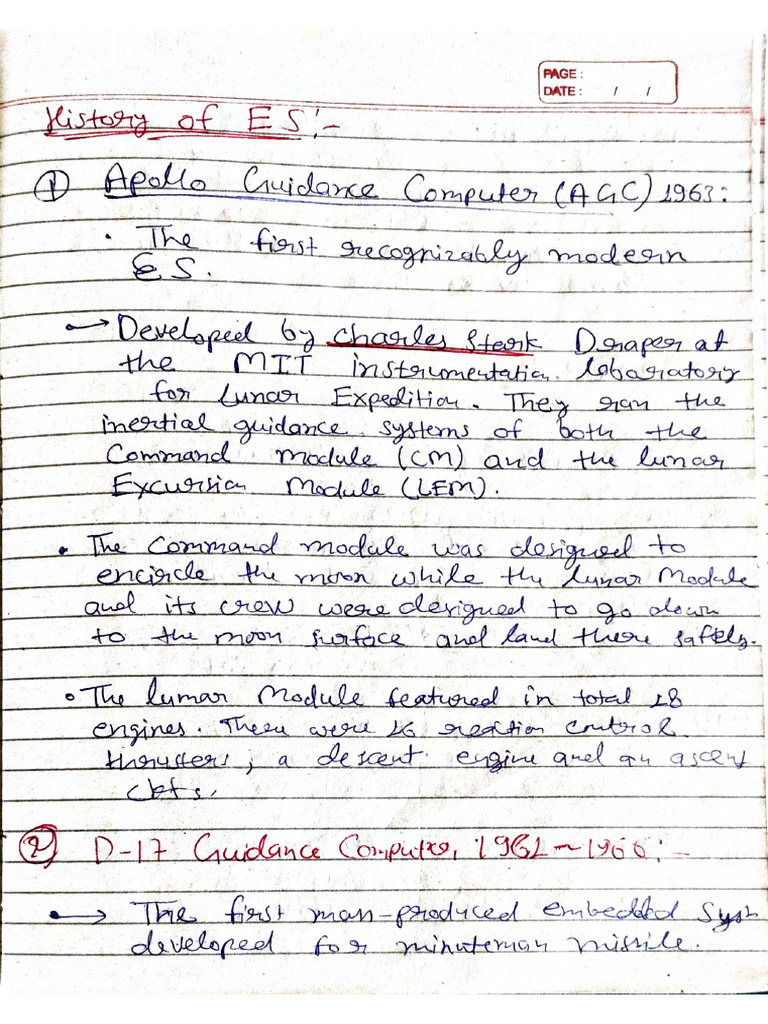 PAGE :
DATE : / /
History of ES:-
① Apollo Guidance Computer (AGC) 1963:
· The first recognizably modern
ES.
→ Developed by Charles Stark Draper at
the MIT instrumentation laboratory
for Lunar Expedition. They ran the
inertial guidance systems of both the
Command module (CM) and the lunar
Excursion Module (LEM).
• The Command module was designed to
encircle the moon while the lunar Module
and its crew were designed to go down
to the moon surface and land there safely.
• The lunar Module featured in total 18
engines. There were 16 reaction control
thrusters, a descent engine and an ascent
② D-17 Guidance Computer, 1961~1966:-
→ The first man-produced embedded Syst
developed for minuteman missile.